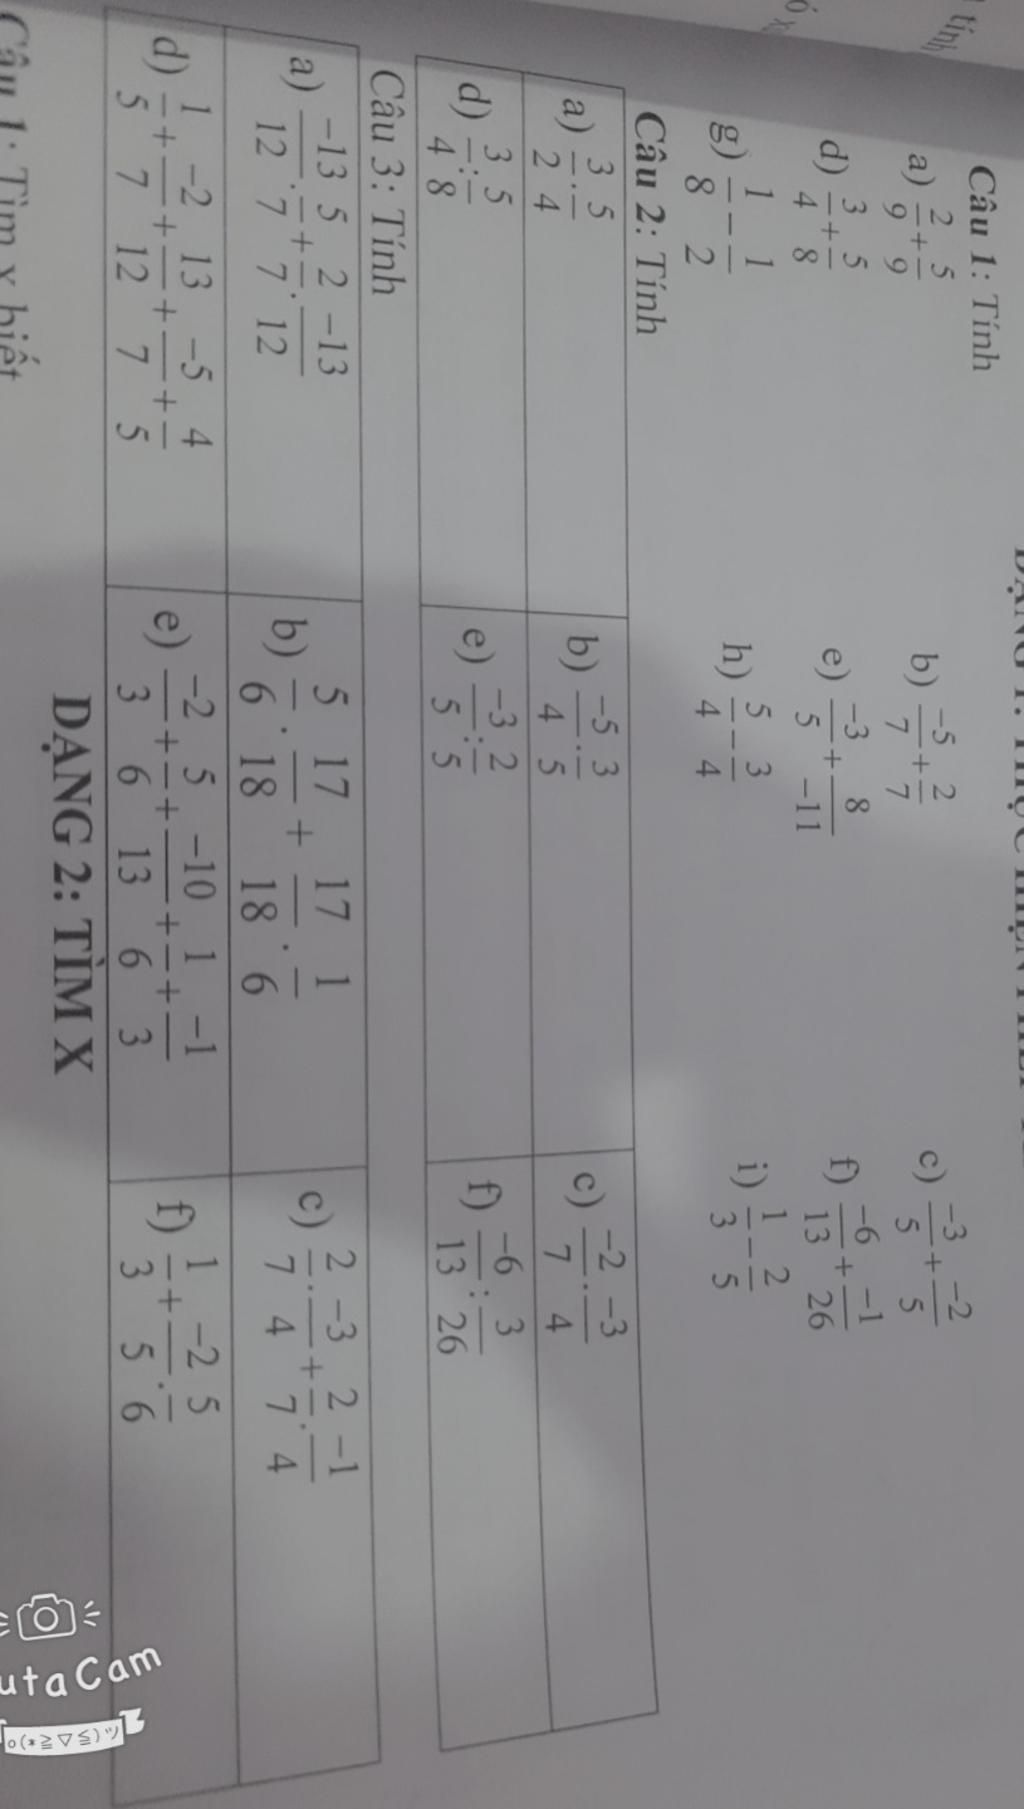 Câu 1: Tính
a) 2/9 + 5/9 b) -5/7 + 2/7 c) -3/5 + -2/5
d) 3/4 + 5/8 e) -3/5 + 8/-11 f) -6/13 + -1/26
g) 1/8 - 1/2 h) 5/4 - 3/4 i) 1/3 - 2/5
Câu 2: Tính
a) 3/2 . 5/4 b) -5/4 . 3/5 c) -2/7 . -3/4
d) 3/4 : 5/8 e) -3/5 : 2/5 f) -6/13 : 3/26
Câu 3: Tính
a) -13/12 . 5/7 + 2/7 . -13/12 b) 5/6 . 17/18 + 17/18 . 1/6 c) 2/7 . -3/4 + 2/7 . -1/4
d) 1/5 + -2/7 + 13/12 + -5/7 + 4/5 e) -2/3 + 5/6 + -10/13 + 1/6 + -1/3 f) 1/3 + -2/5 . 5/6
DẠNG 2: TÌM X
Câu 1: Tìm x biết
tính
utaCam